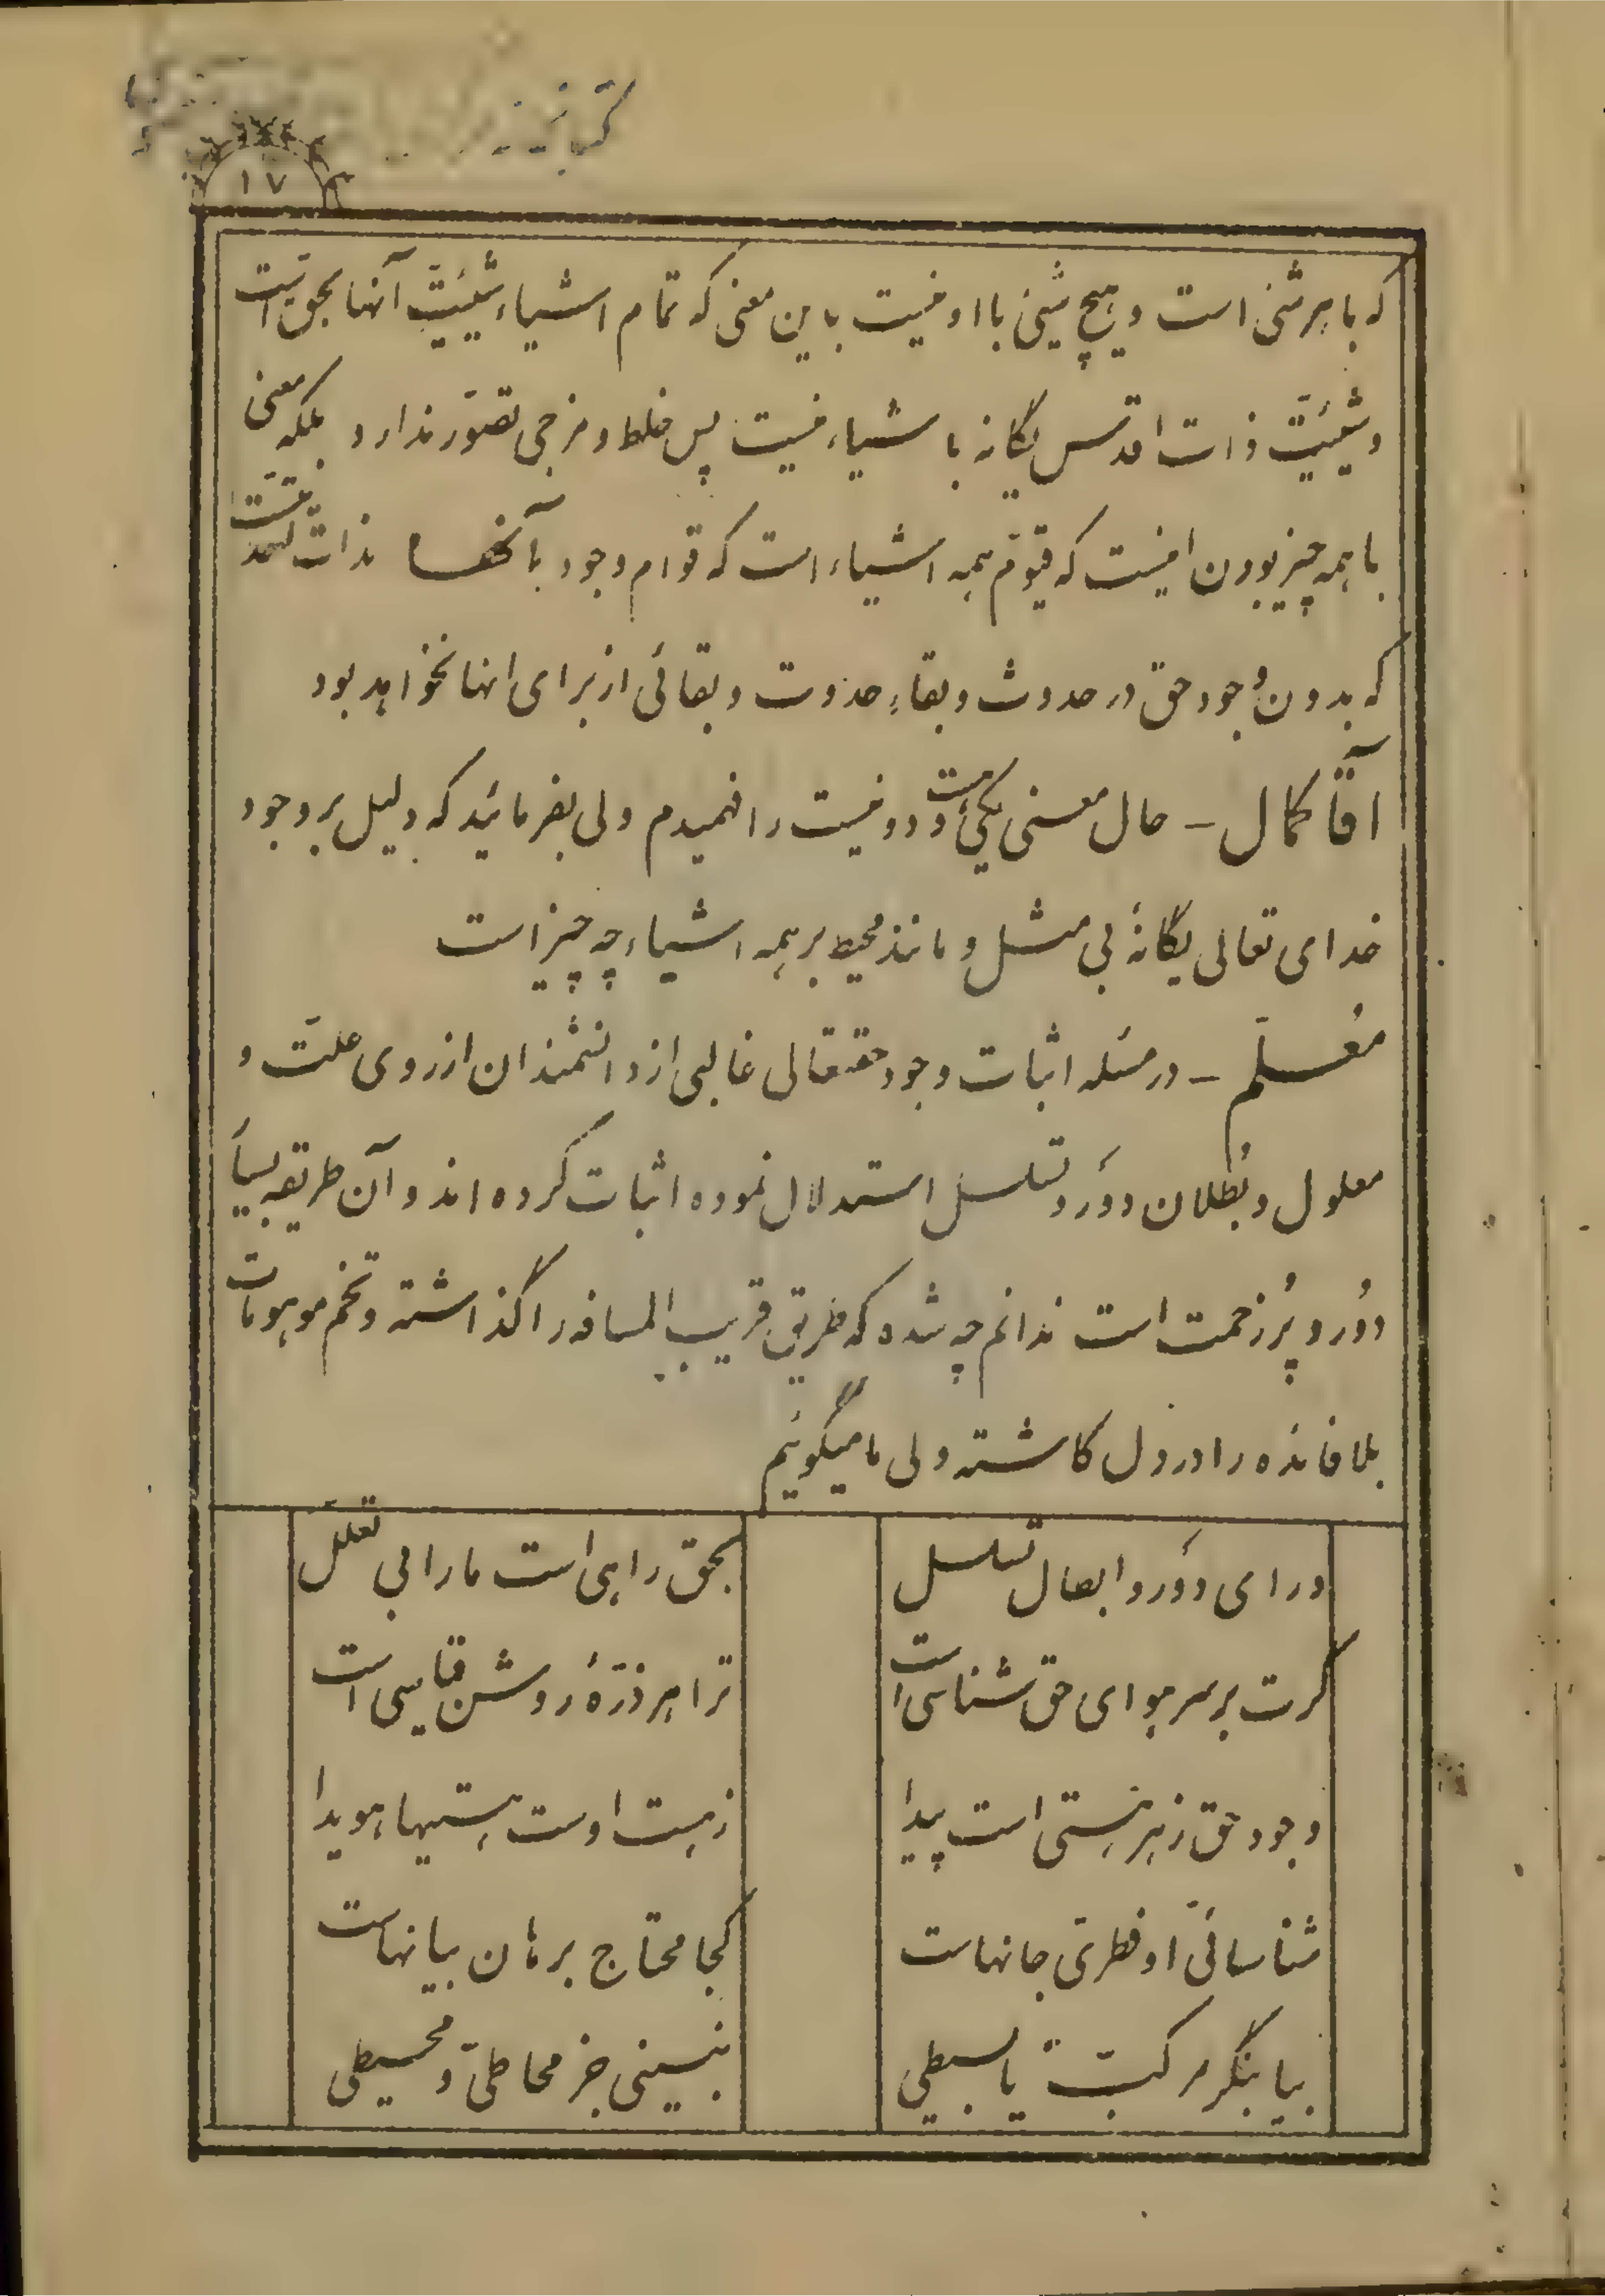 ۱۷
که با هر شئ است و هیچ شیئ با او نیست باین معنی که تمام اشیاء شیئیّت آنها بحق است
و شیئیّت ذات اقدس یگانه با شیاء نیست پس خلط و مزجی تصوّر ندارد بلکه معنی
با همه چیز بودن اینست که قیّوم همه اشیاء است که قوام وجود با آنها بذات
که بدون وجود حق در حدوث و بقاءِ حدوث و بقائی از برای انها نخواهد بود
آقا کمال - حال معنی یکی است و دو نیست را فهمیدم ولی بفرمائید که دلیل بر وجود
خدای تعالی یگانهٔ بی مثل و مانند محیط بر همه اشیاء چه چیز است
مُعلّم - در مسئله اثبات وجود حقتعالی غالبی از دانشمندان از روی علّت و
معلول و بُطلان دَور و تسلسل استدلال نموده اثبات کرده اند و آن طریقه بسیا
دُور و پُر زحمت است ندانم چه شده که طریق قریب المسافه را گذاشته و تخم موهومات
بلا فائده را در دل کاشته ولی ما میگوئیم
ورای دَور و ابطال تسلسل
بحق راهی است ما را بی تعلّل
گرت بر سر هوای حق شناسی است
ترا هر ذرّهٔ روشن قیاسی است
وجود حق ز هر هستی است پیدا
ز هست اوست هستیها هویدا
شناسائی او فطریّ جانهاست
کجا محتاج برهان بیانهاست
بیا بنگر مرکّب یا بسیطی
نبینی جز محاطیّ و محیطی